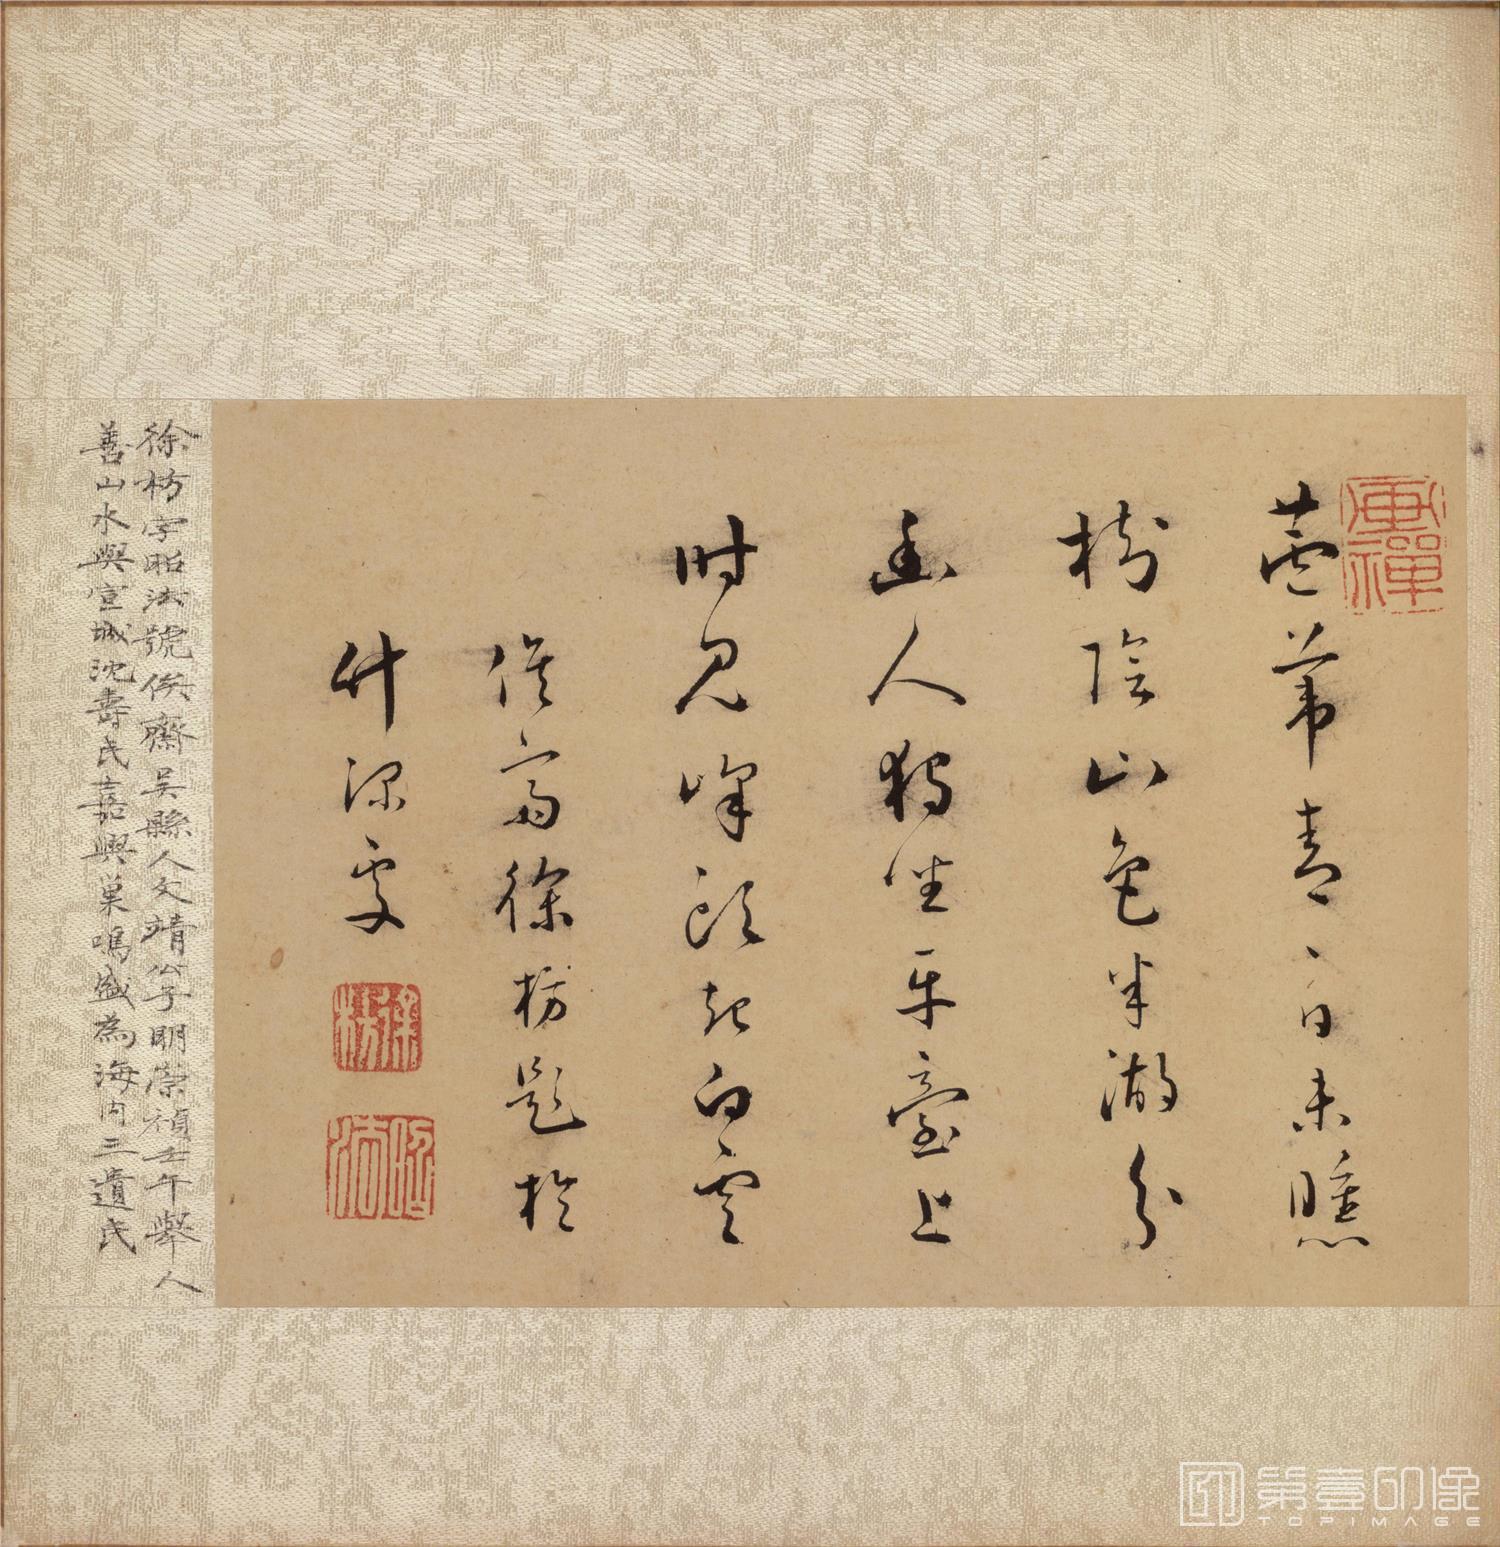 蘆葦青青日未曛
樹陰山色半湖分
幽人獨坐平臺上
時見峰頭起白雲
俟齋徐枋題於
什深處
徐枋
昭法
徐枋字昭法號俟齋吳縣人文靖公子明崇禎壬午舉人
善山水與宣城沈壽民嘉興巢鳴盛為海內三遺民
第壹印像
TOPIMAGE